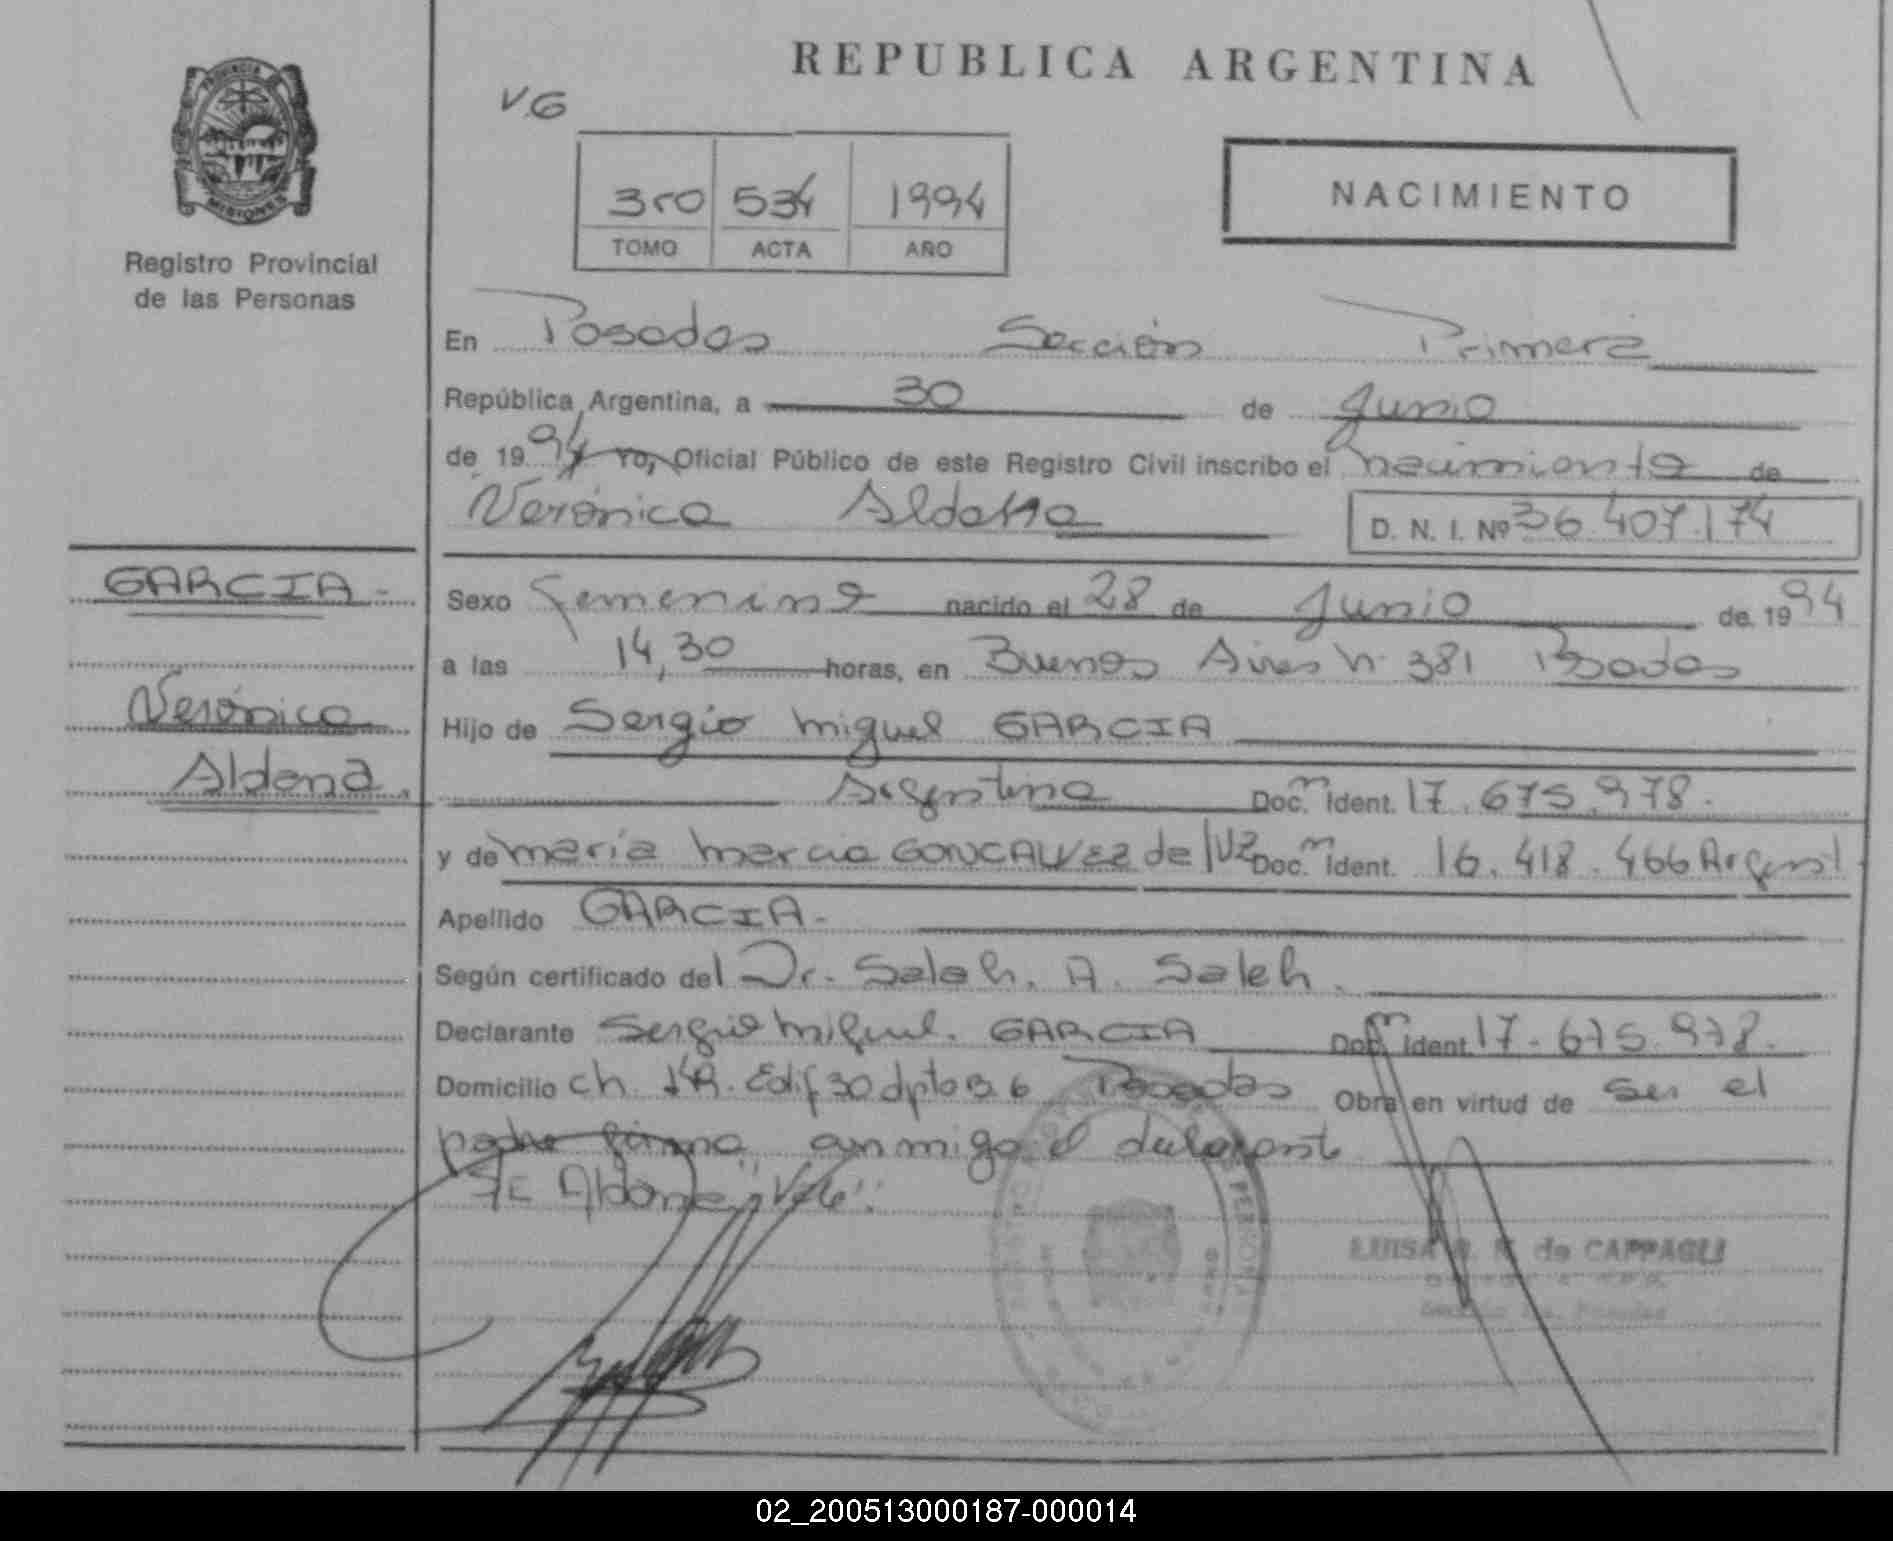 REPUBLICA ARGENTINA
V.G
PROVINCIA DE
MISIONES
3ro 534 1994
TOMO ACTA AÑO
NACIMIENTO
Registro Provincial
de las Personas
En Posadas Sección Primera
República Argentina, a 30 de Junio
de 1994 Yo, Oficial Público de este Registro Civil inscribo el nacimiento de
Verónica Aldana
D. N. I. Nº 36.407.174
GARCIA -
Verónica
Aldana.
Sexo Femenino nacido el 28 de Junio de 1994
a las 14,30 horas, en Buenos Aires n. 381 Posadas
Hijo de Sergio Miguel GARCIA
Argentina Doc. m Ident. 17.675.978.
y de María Marcia GONCALVEZ de Doc. m Ident. 16.418.466 Argent
Apellido GARCIA -
Según certificado del Dr. Saleh. A. Saleh.
Declarante Sergio Miguel. GARCIA Doc. m Ident. 17.675.978.
Domicilio ch. Edif 30 dpto B 6 Posadas Obra en virtud de ser el
padre firma conmigo el declarante
Aldana "Vale".
PERSONAS
LUISA de CAPPAGLI
02_200513000187-000014